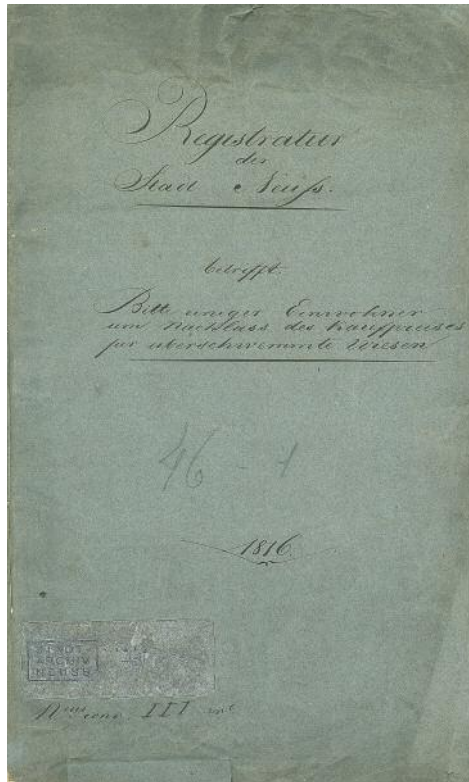 Registratur
der
Stad Neuſs.
betrifft.
Bitte einiger Einwohner
um Nachlass des Kaufpreises
für uberschwemmte Wiesen
46 - 1
1816.
STADT-
ARCHIV
NEUSS
III